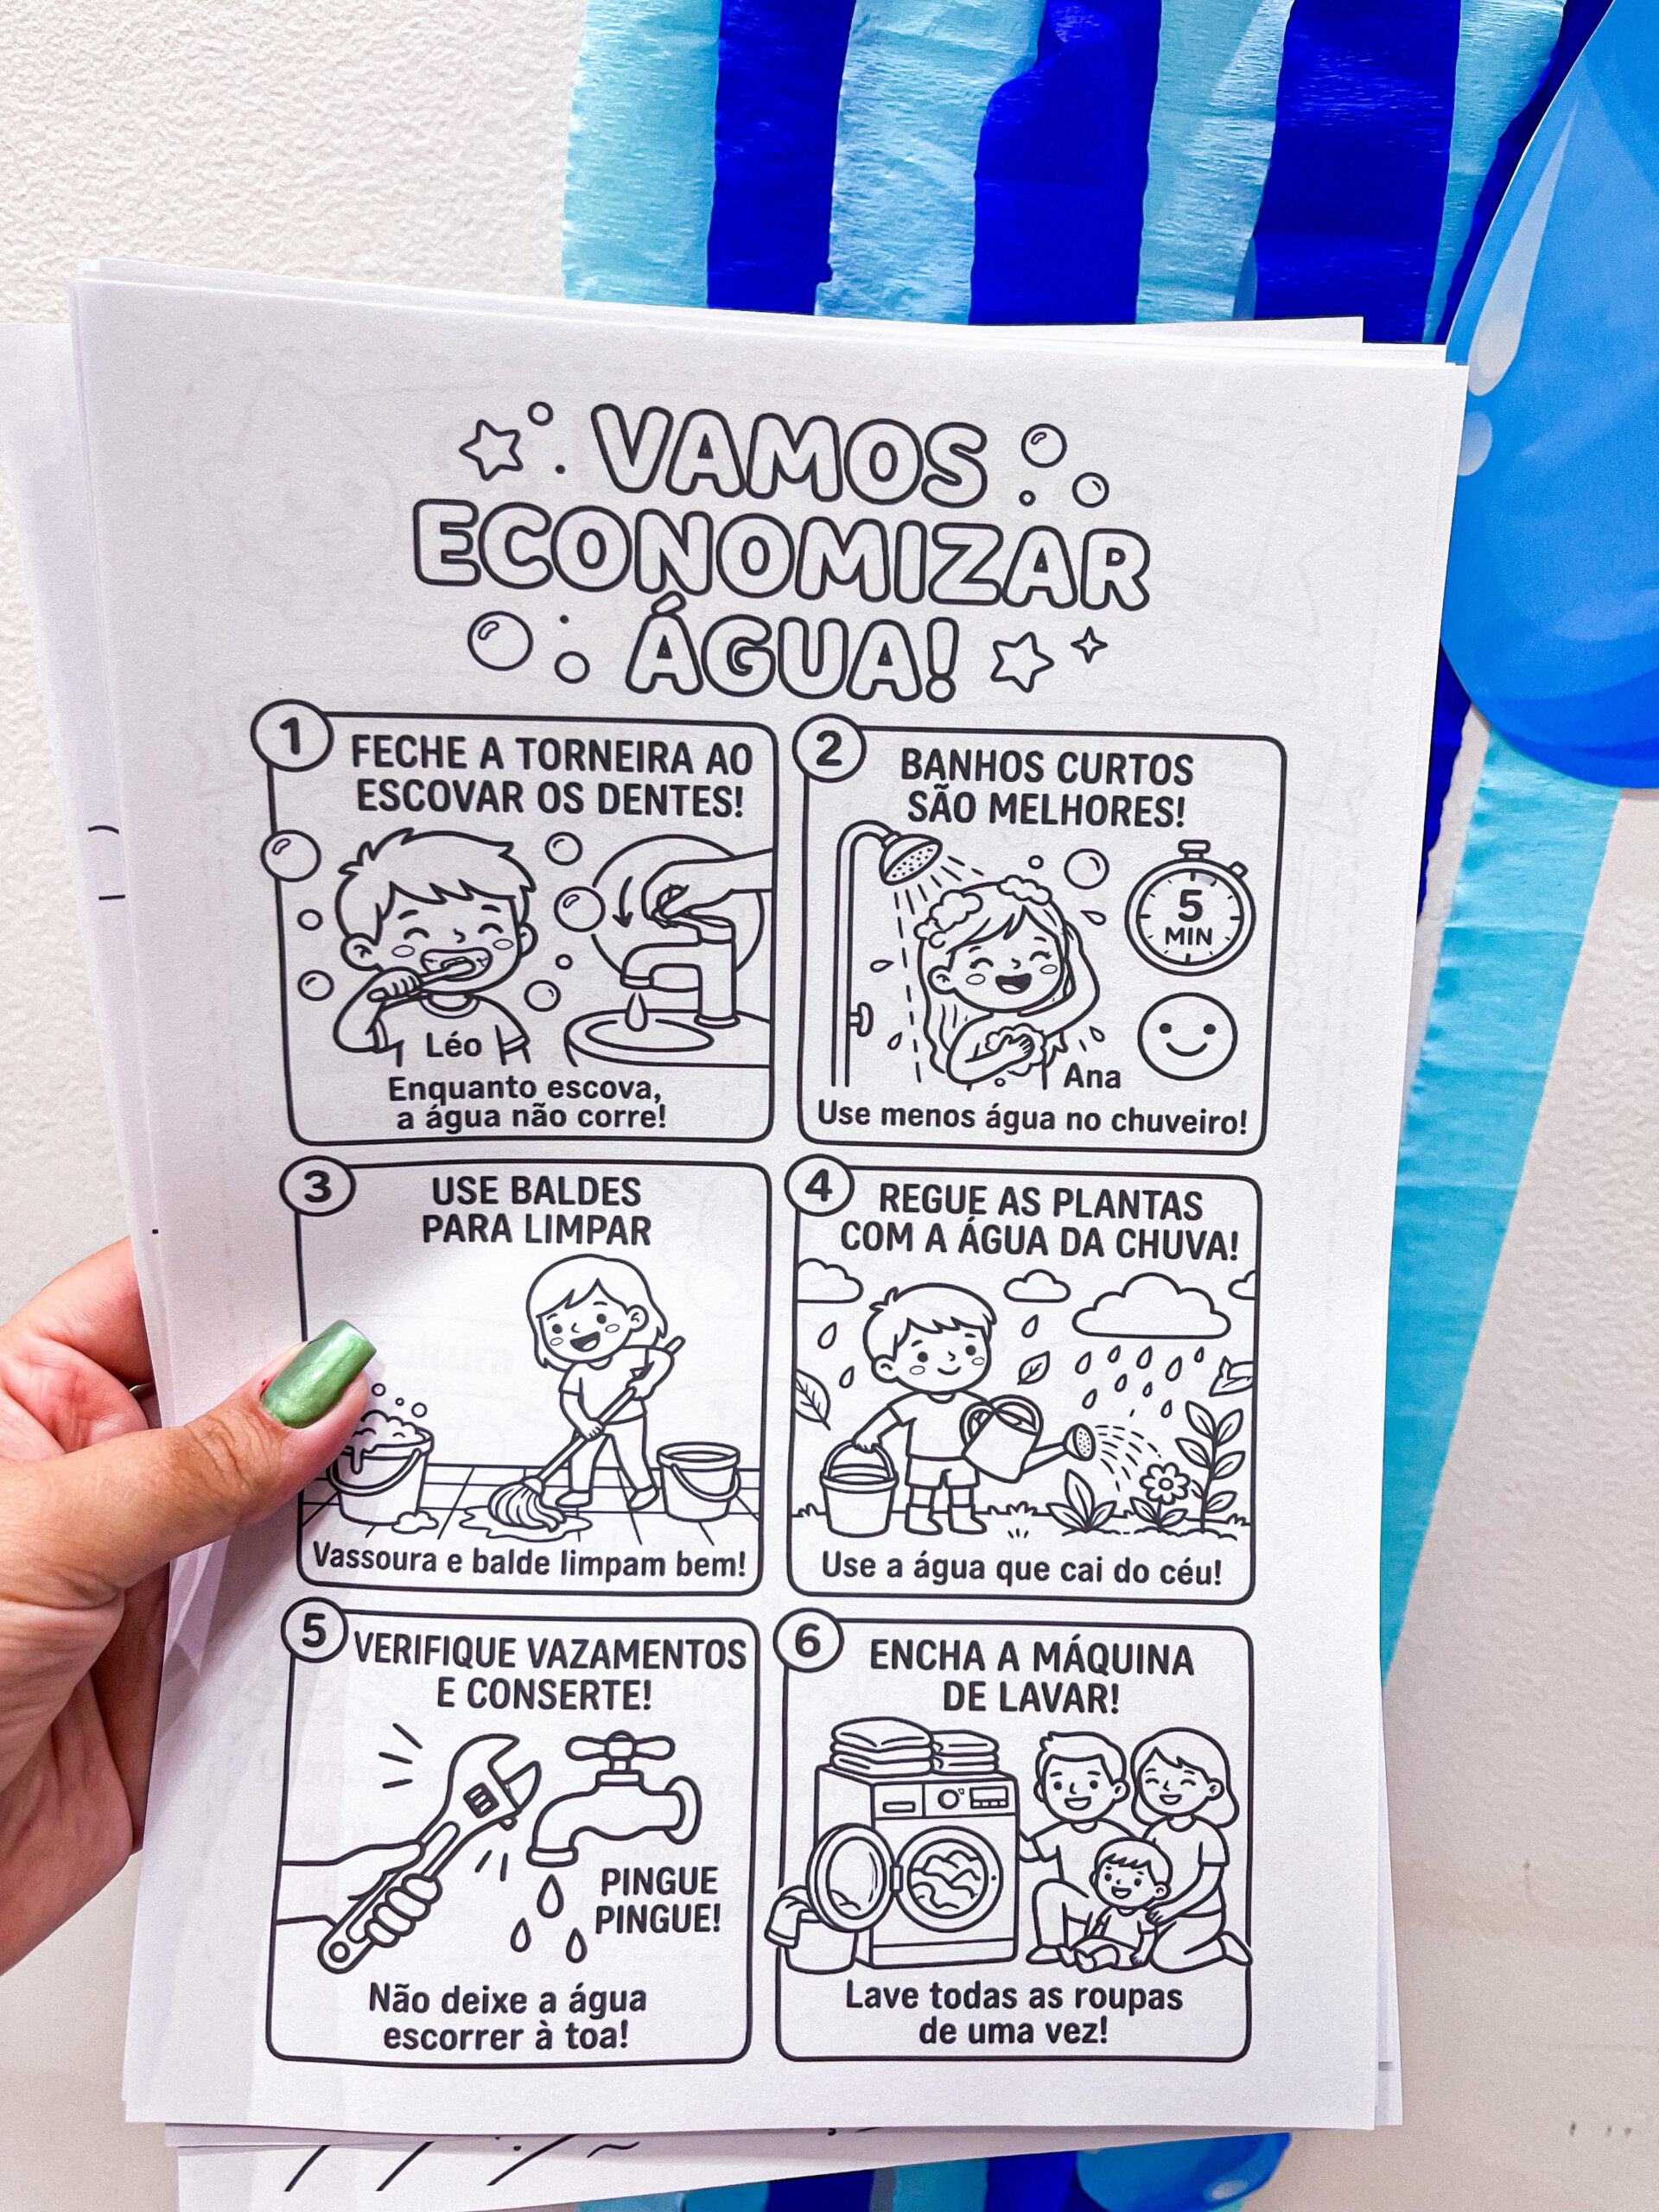 VAMOS
ECONOMIZAR
ÁGUA!
1
FECHE A TORNEIRA AO
ESCOVAR OS DENTES!
Léo
Enquanto escova,
a água não corre!
2
BANHOS CURTOS
SÃO MELHORES!
5
MIN
Ana
Use menos água no chuveiro!
3
USE BALDES
PARA LIMPAR
Vassoura e balde limpam bem!
4
REGUE AS PLANTAS
COM A ÁGUA DA CHUVA!
Use a água que cai do céu!
5
VERIFIQUE VAZAMENTOS
E CONSERTE!
PINGUE
PINGUE!
Não deixe a água
escorrer à toa!
6
ENCHA A MÁQUINA
DE LAVAR!
Lave todas as roupas
de uma vez!